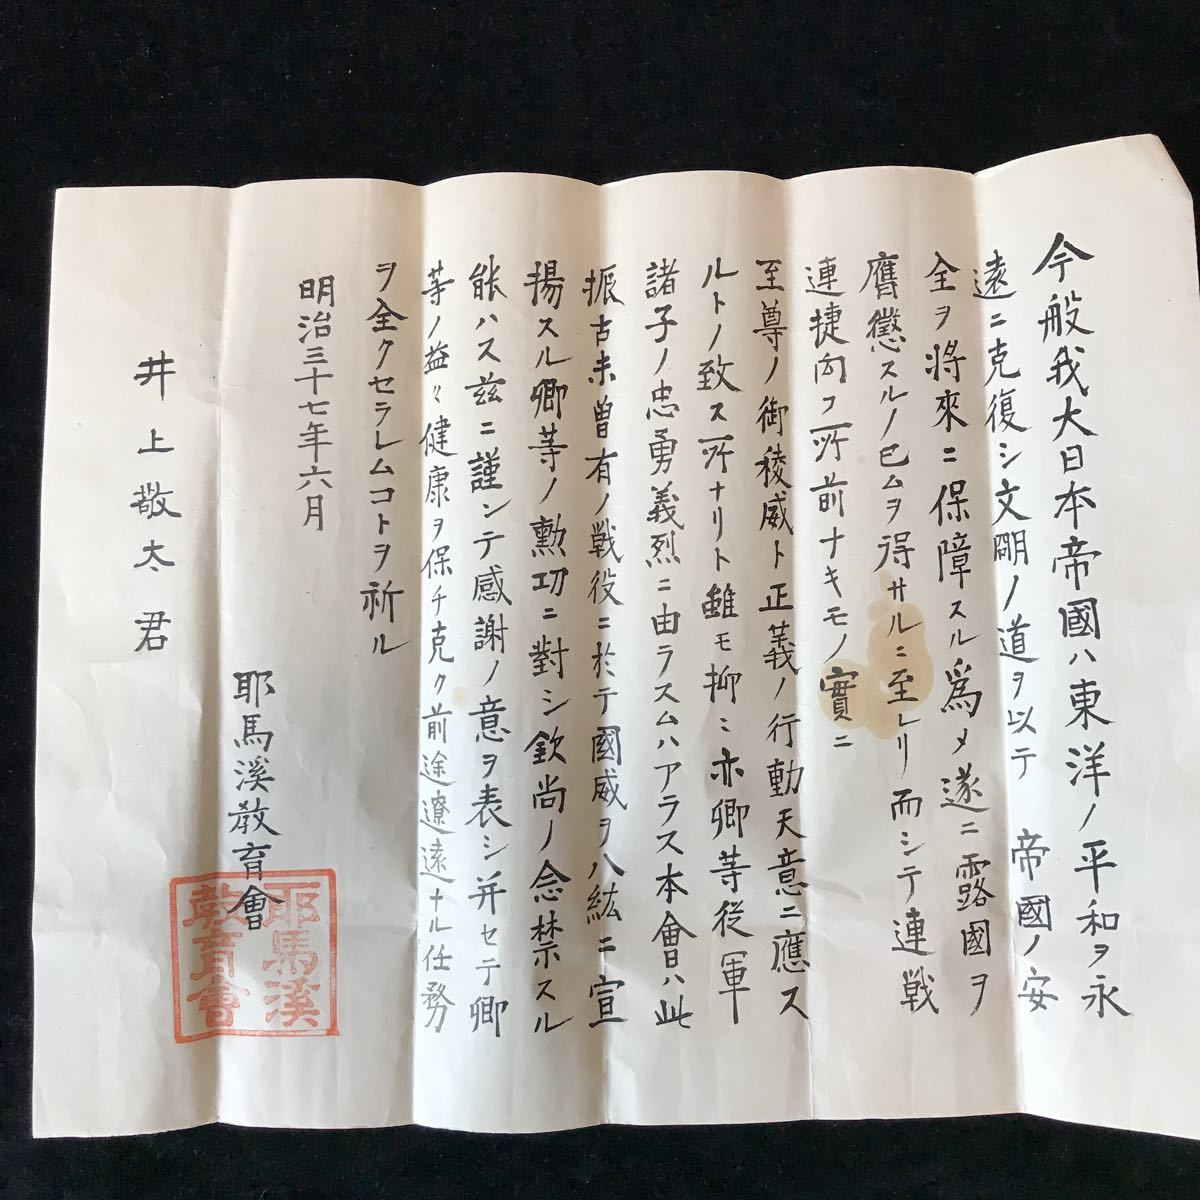 今般我大日本帝國ハ東洋ノ平和ヲ永
遠ニ克復シ文明ノ道ヲ以テ 帝國ノ安
全ヲ將來ニ保障スル爲メ遂ニ露國ヲ
膺懲スルノ已ムヲ得サルニ至レリ而シテ連戦
連捷向フ所前ナキモノ實ニ
至尊ノ御稜威ト正義ノ行動天意ニ應ス
ルトノ致ス所ナリト雖モ抑ミ亦卿等從軍
諸子ノ忠勇義烈ニ由ラスムハアラス本會ハ此
振古未曽有ノ戦役ニ於テ國威ヲ八紘ニ宣
揚スル卿等ノ勲功ニ對シ欽尚ノ念禁スル
能ハス茲ニ謹ンテ感謝ノ意ヲ表シ并セテ卿
等ノ益々健康ヲ保チ克ク前途遼遠ナル任務
ヲ全クセラレムコトヲ祈ル
明治三十七年六月
耶馬溪敎育會
耶馬溪
敎育會
井上敬太君